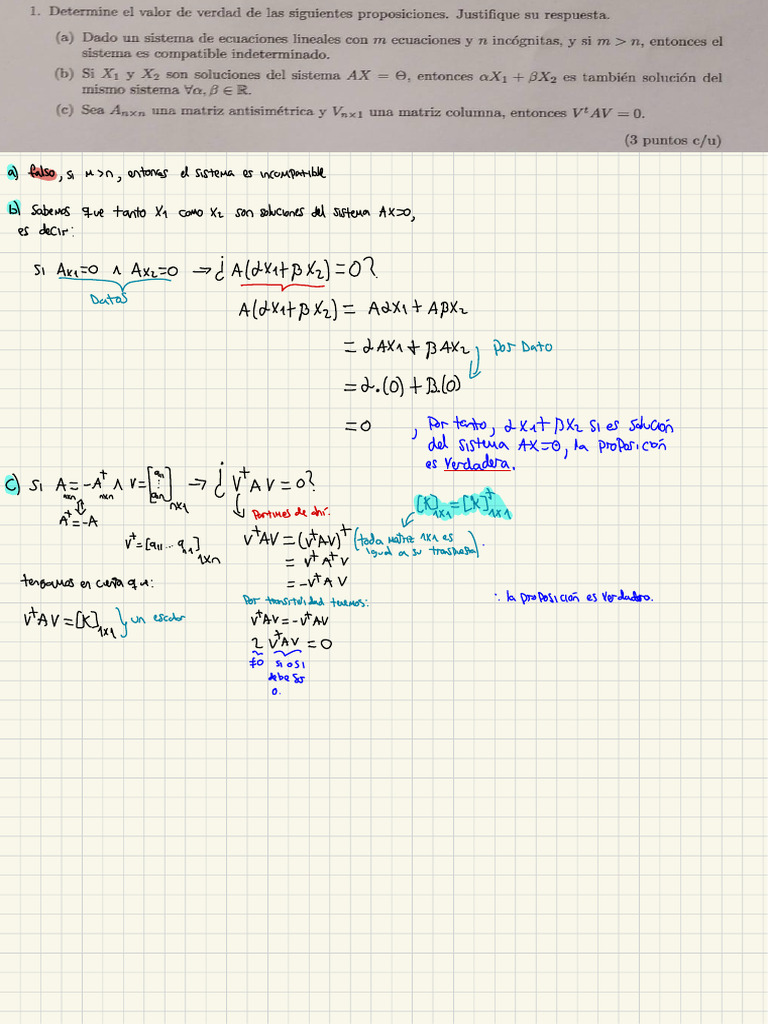 1. Determine el valor de verdad de las siguientes proposiciones. Justifique su respuesta.
(a) Dado un sistema de ecuaciones lineales con m ecuaciones y n incógnitas, y si m > n, entonces el
sistema es compatible indeterminado.
(b) Si X₁ y X₂ son soluciones del sistema AX = Θ, entonces αX₁ + βX₂ es también solución del
mismo sistema ∀α, β ∈ ℝ.
(c) Sea Aₙₓₙ una matriz antisimétrica y Vₙₓ₁ una matriz columna, entonces VᵗAV = 0.
(3 puntos c/u)
a) falso, si m>n, entonces el sistema es incompatible
b) Sabemos que tanto X1 como X2 son soluciones del sistema AX=0,
es decir:
Si Ax1=0 ∧ Ax2=0 → ¿A(αX1+βX2)=0?
Datos
A(αX1+βX2) = AαX1 + AβX2
= αAX1 + βAX2 por Dato
= α.(0) + β.(0)
= 0 , Por tanto, αX1+βX2 si es solución
del sistema AX=0, la proposición
es Verdadera.
c) Si A = -Aᵗ ∧ V = [a11 ⋮ an1] nx1 → ¿VᵗAV = 0?
nxn nxn
Aᵗ=-A
Partimos de ahí.
[K]1x1 = [K]ᵗ1x1
Vᵗ=[a11 ... an1] 1xn
VᵗAV = (VᵗAV)ᵗ (toda matriz 1x1 es
igual a su transpuesta).
= VᵗAᵗV
tengamos en cuenta que:
= -VᵗAV
VᵗAV = [K]1x1 } un escalar
Por transitividad tenemos:
VᵗAV = -VᵗAV
2 VᵗAV = 0
≠0 si o si
debe ser
0.
∴ la proposición es verdadera.